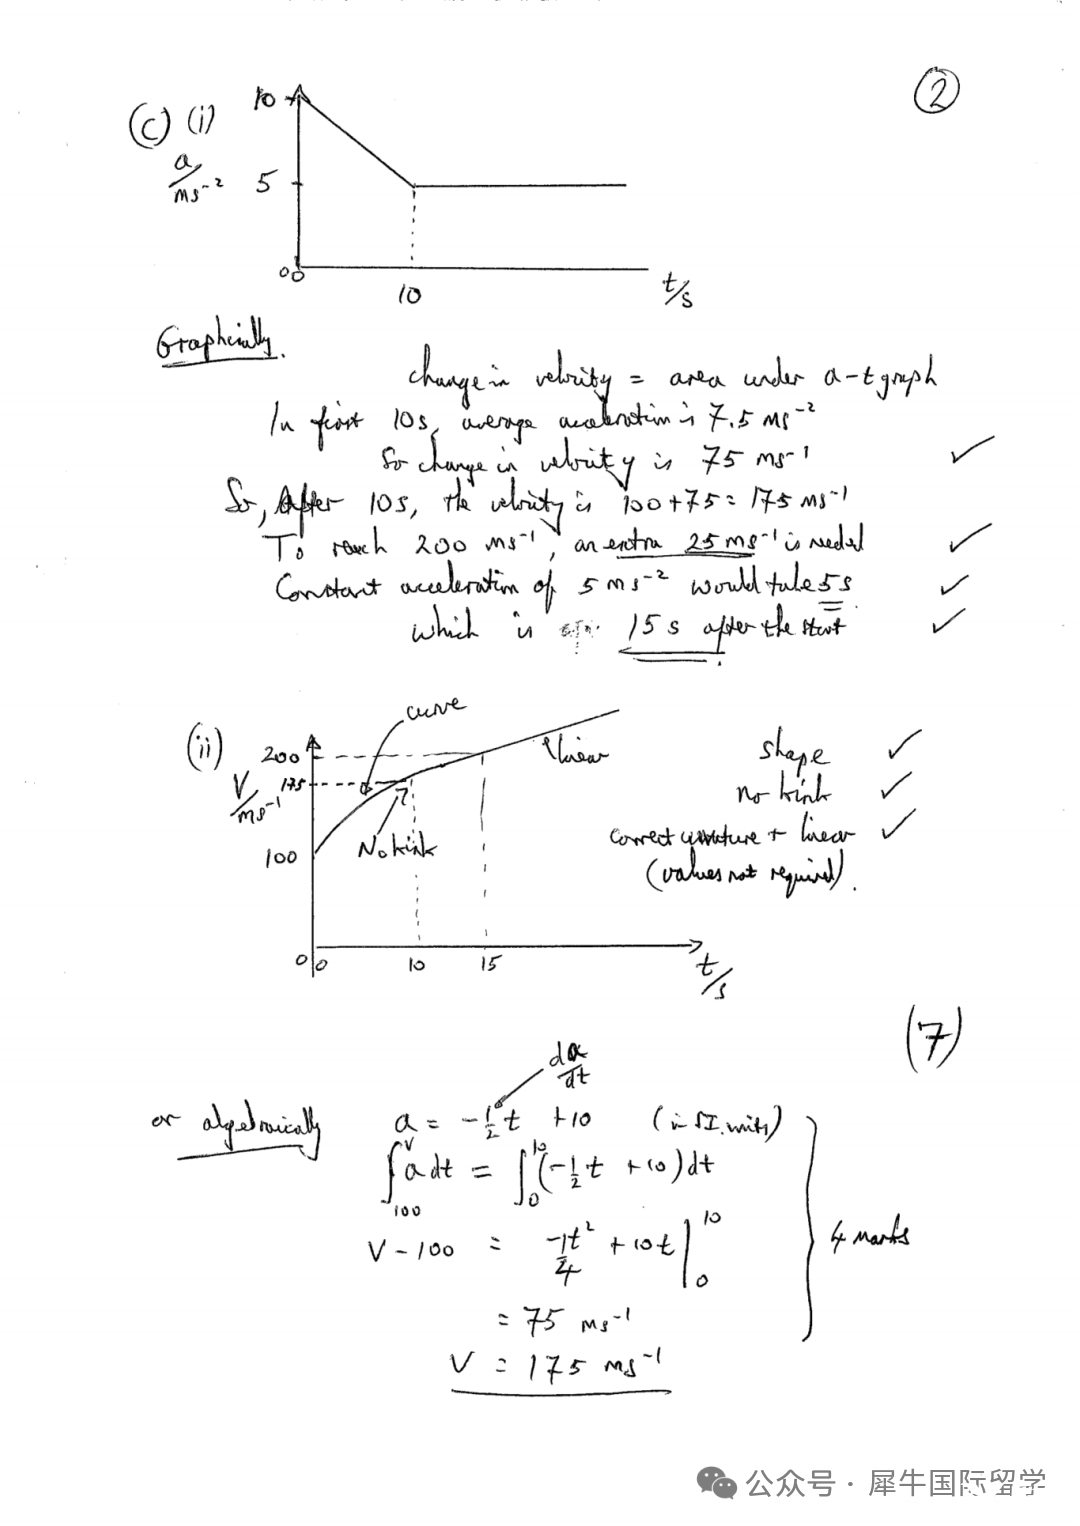 2
(c) (i)
10
a/ms⁻²
5
0 0
10
t/s
Graphically.
change in velocity = area under a-t graph
In first 10s, average acceleration is 7.5 ms⁻²
So change in velocity is 75 ms⁻¹ ✓
So, After 10s, the velocity is 100+75 = 175 ms⁻¹
To reach 200 ms⁻¹, an extra 25 ms⁻¹ is needed ✓
Constant acceleration of 5 ms⁻² would take 5s ✓
which is 15 s after the start. ✓
(ii)
curve
200
175
V/ms⁻¹
linear
No kink
100
0 0
10
15
t/s
shape ✓
no kink ✓
correct curvature + linear ✓
(values not required).
(7)
da/dt
or algebraically
a = -½t + 10 (in SI. units)
∫₁₀₀ⱽ a dt = ∫₀¹⁰ (-½t + 10) dt
V - 100 = -¼t² + 10t |₀¹⁰
4 marks
= 75 ms⁻¹
V = 175 ms⁻¹
公众号 · 犀牛国际留学